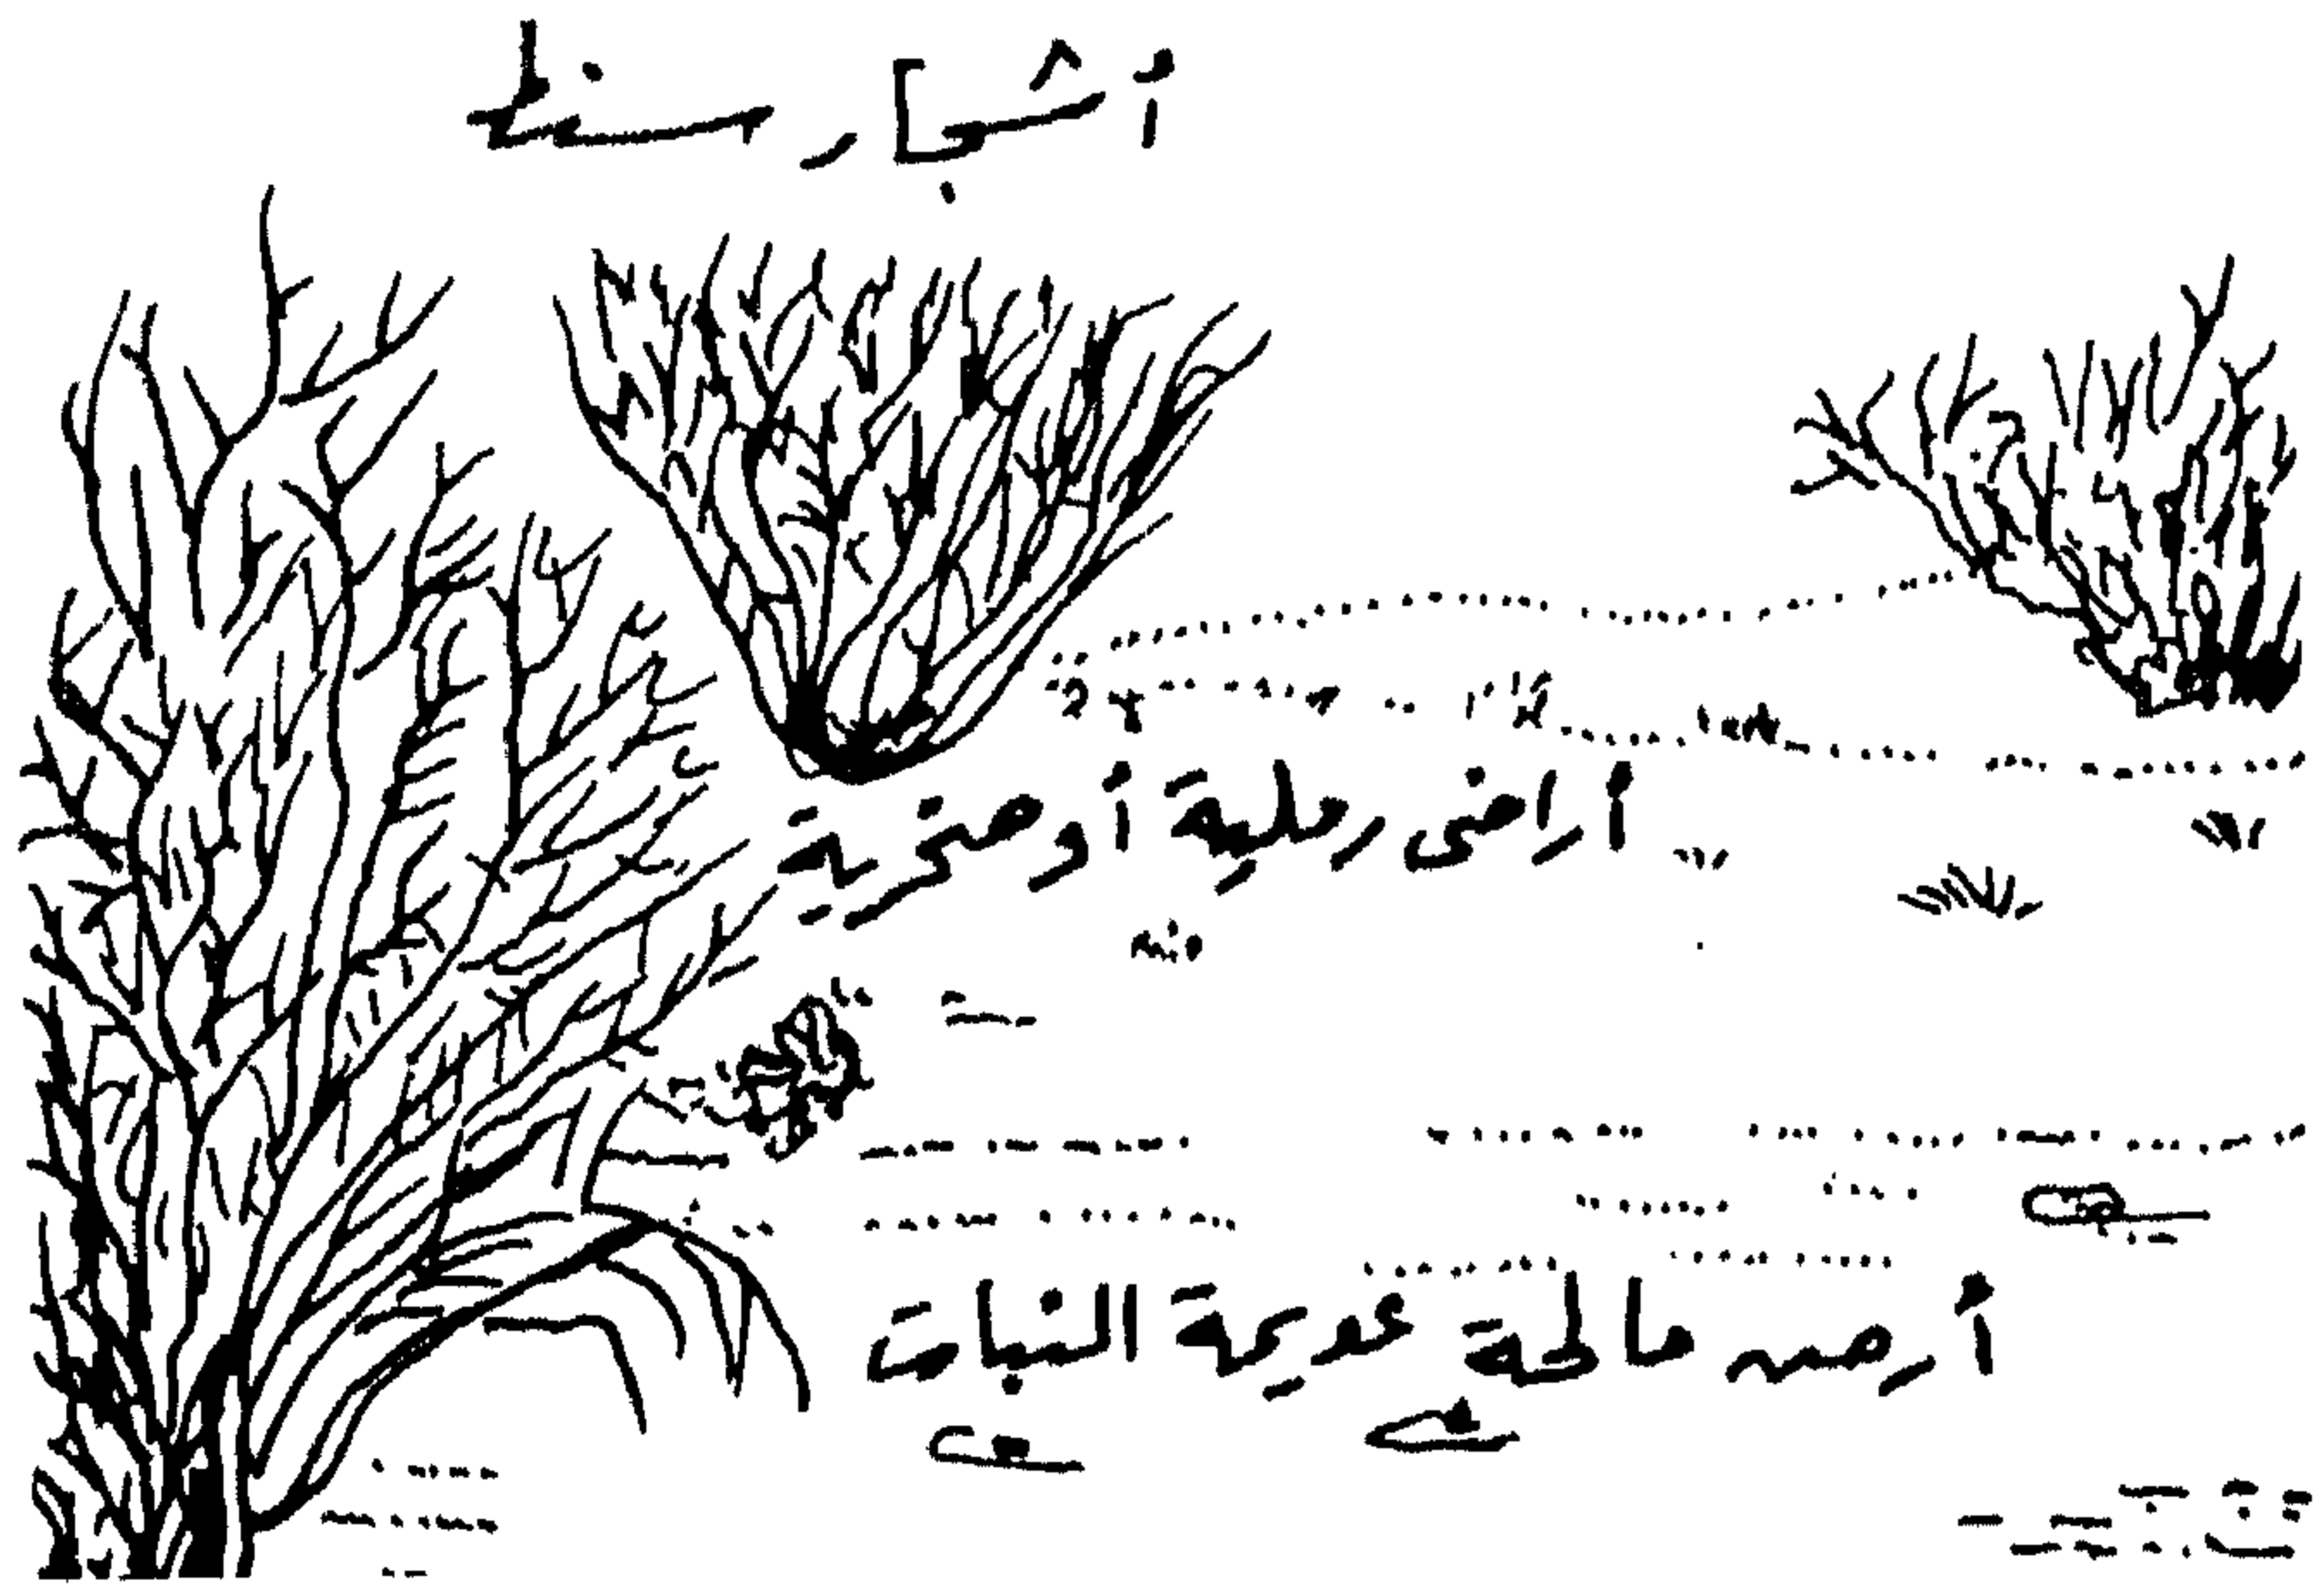 أشجار سنط
أراضى رملية أو صخرية
أرض مالحة عديمة النبات